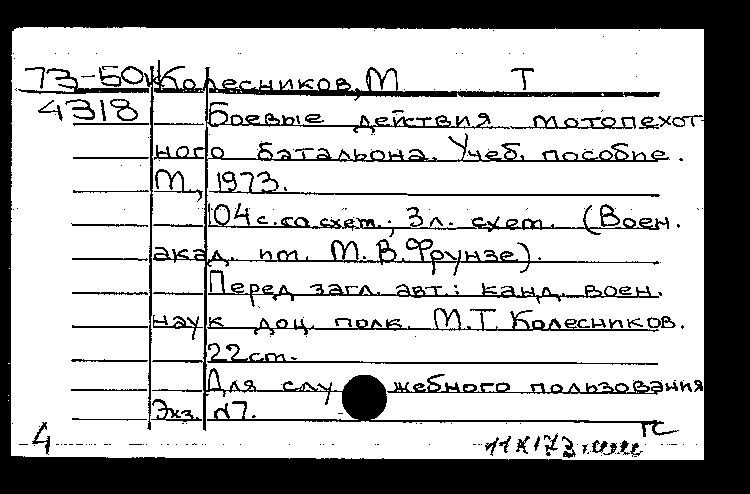 73-50к Колесников, М Т
4318 Боевые действия мотопехот-
ного батальона. Учеб. пособие.
М., 1973.
104 с. со схет.; 3 л. схет. (Воен.
акад. им. М. В. Фрунзе).
Перед загл. авт.: канд. воен.
наук доц. полк. М. Т. Колесников.
22 см.
Для служебного пользования
Экз. №7.
ГС
4 11 X 173